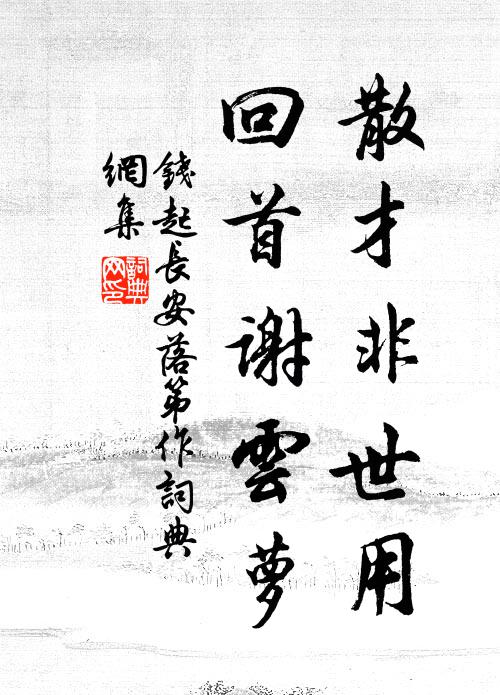 散才非世用
回首謝雲夢
錢起長安落第作詞典
網集
詞典網印